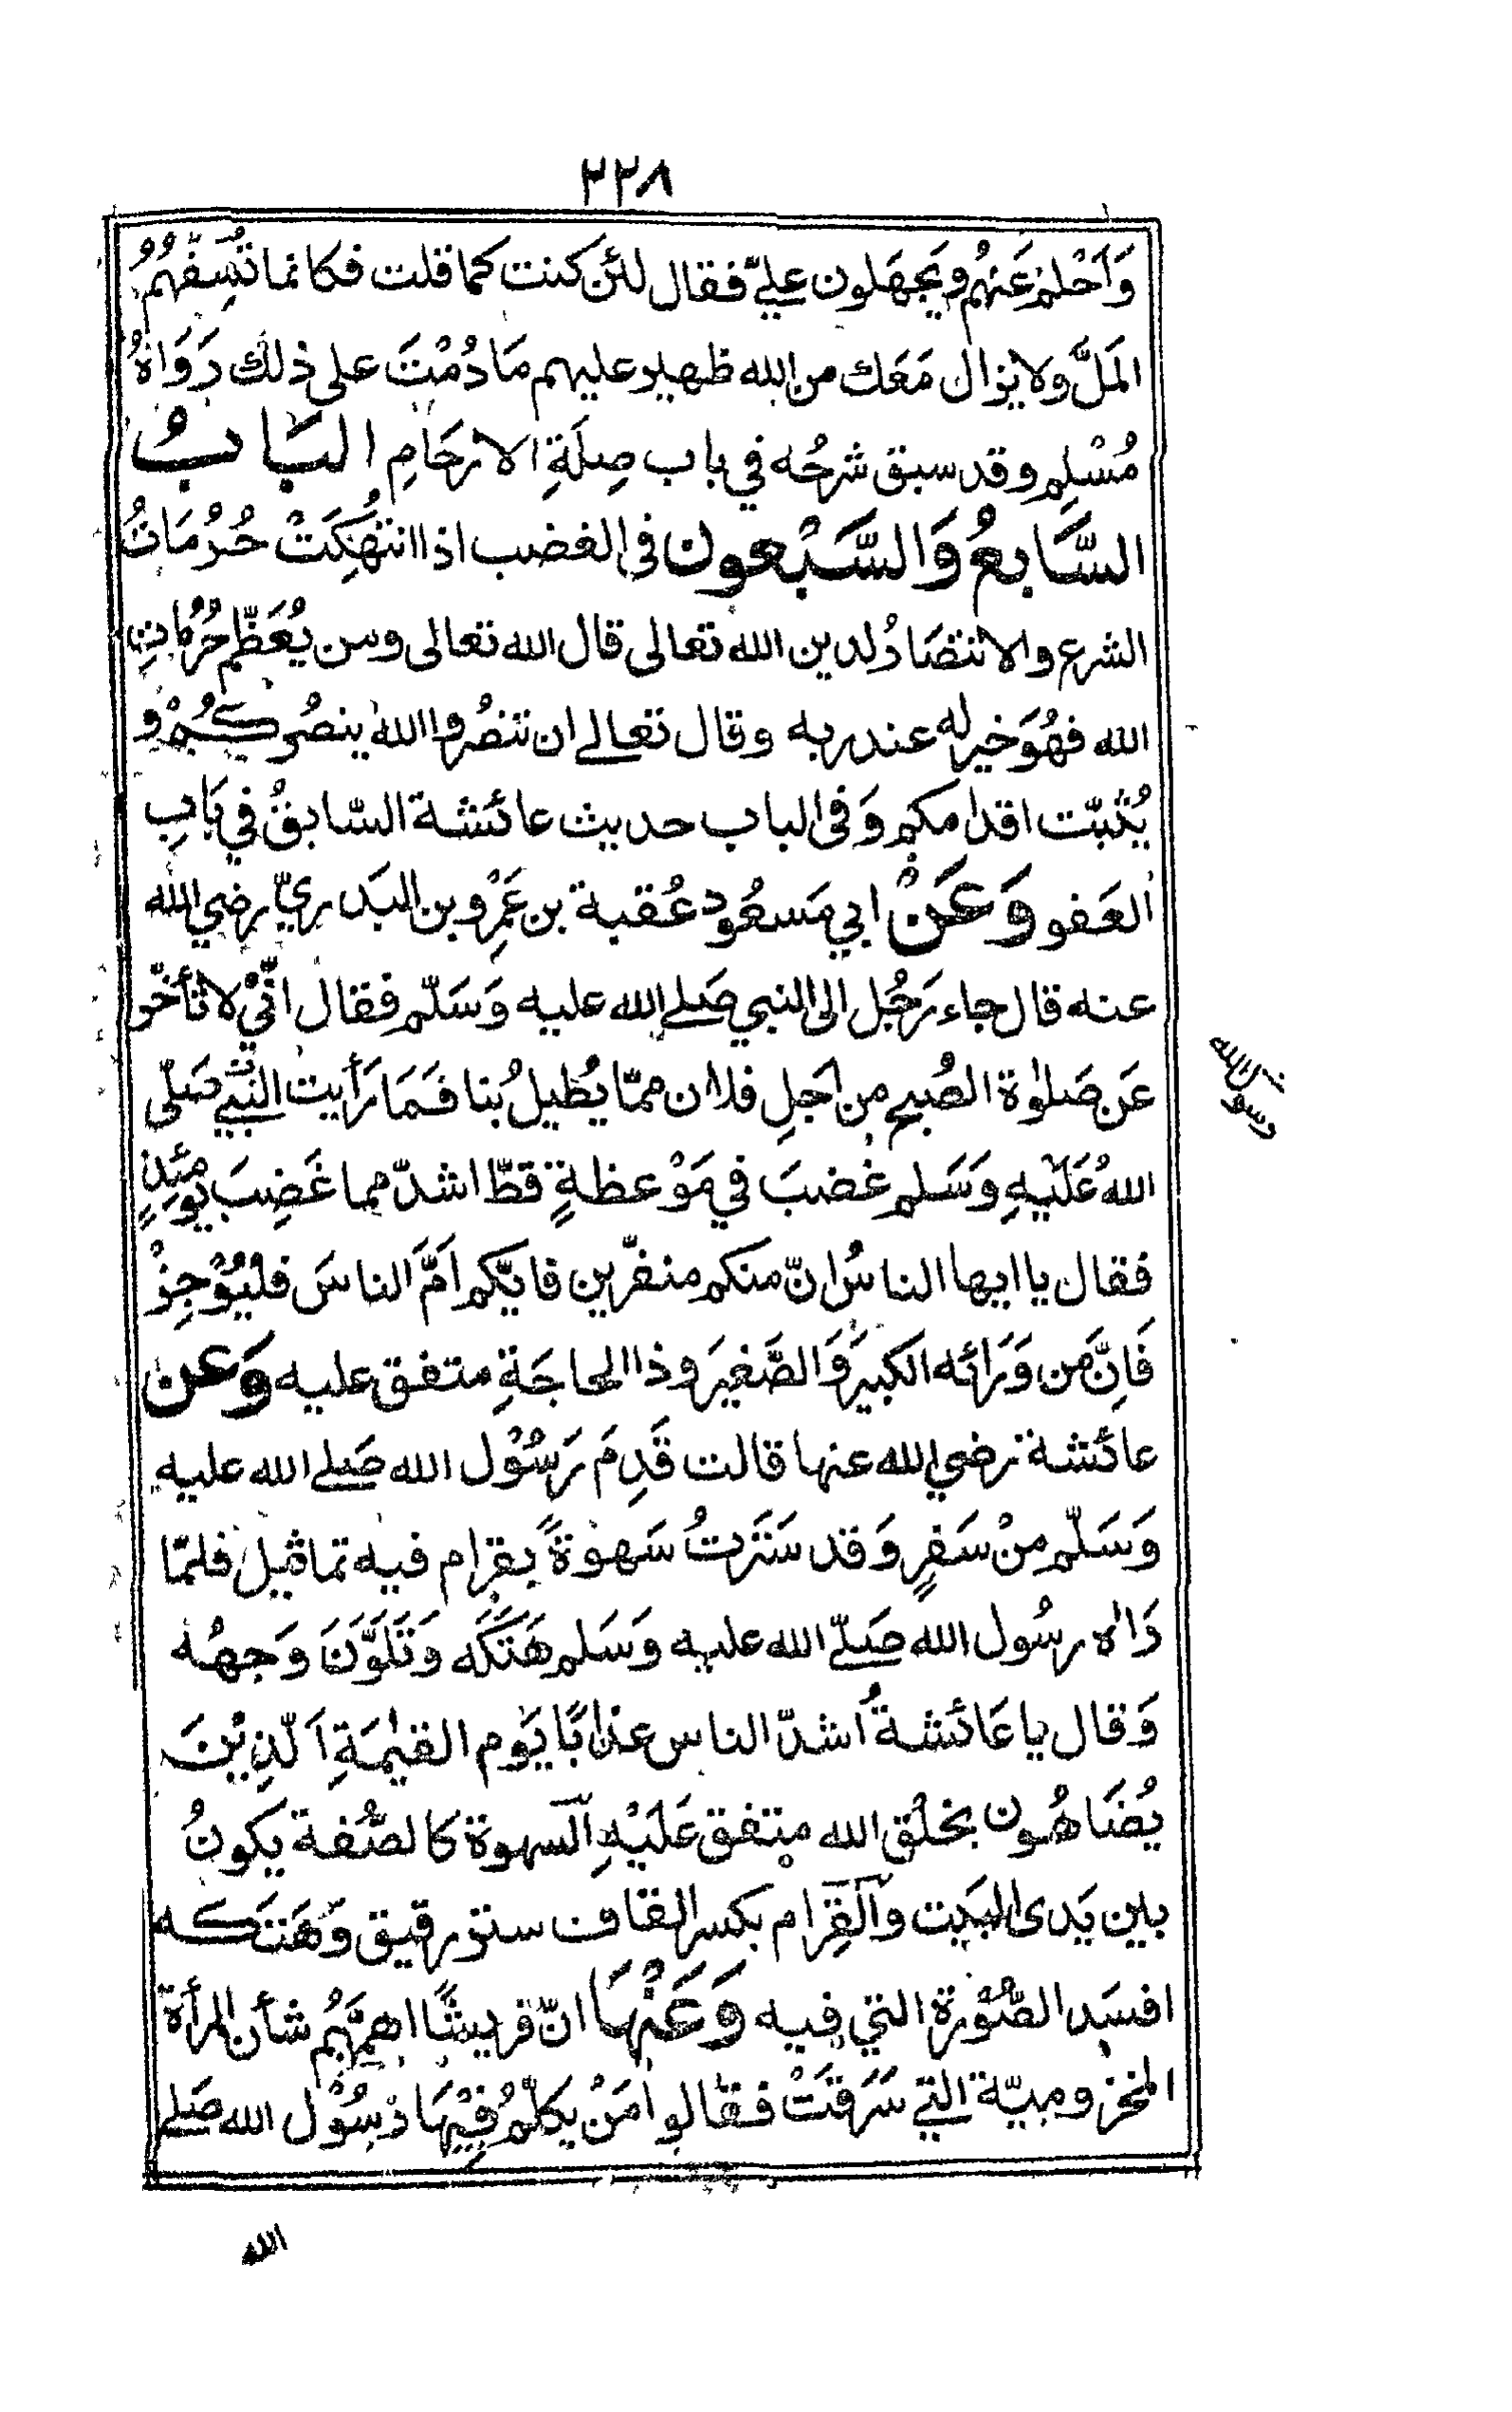 ٢٢٨
وَاَحْلُمُ عَنهُم ويَجهَلون عليّ فقال لئن كنت كما قلت فكانما تُسِفُّهُمُ
المَلَّ ولا يزال مَعَك من الله ظهير عليهم مَا دُمْتَ على ذلك رَوَاهُ
مُسْلِم وقد سبق شرحُه في باب صِلَةِ الارحَامِ البَابُ
السَّابِعُ وَالسَّبْعون في الغضب اذا انتُهِكَتْ حُرُمَاتُ
الشرع والانتصَارُ لدين الله تعالى قال الله تعالى ومن يُعَظِّم حُرُمَاتِ
الله فهُوَ خير له عند ربه وقال تعالى ان تنصُروا الله ينصُركُمْ و
يُثَبّت اقدامكم وَفى الباب حديث عائشة السّابقُ في بَابِ
العَفو وَعَنْ ابي مَسعُود عُقبة بن عَمْرِو بن البَدريّ رضي الله
عنه قال جاء رَجُل الى النبي صَلى الله عليه وَسَلّم فقال انّي لاتأخّر
عَن صَلٰوة الصُبح من اَجَلِ فلان ممّا يُطيلُ بُنا فَمَا رَأيت النَّبي صَلّى
اللهُ عَلَيهِ وَسَلم غَضبَ في مَوْعظةٍ قطّ اشدّ مما غَضِبَ يومَئِذٍ
فقال يا ايها الناسُ انّ منكم منفّرين فايّكم اَمَّ الناسَ فليُوْجِزْ
فَاِنَّ مَن وَرَائه الكبيرَ وَالصَّغيرَ وذا الحاجَةِ متفق عليه وَعن
عائشة رضي الله عنها قالت قَدِمَ رَسُوْل الله صَلى الله عليه
وَسَلّم مِنْ سَفرٍ وَقد سَتَرتُ سَهوَةً بِقرام فيه تماثيل فلمّا
رَاٰه رسُول الله صَلّى الله عليه وَسَلم هَتَكَه وَتَلَوَّنَ وَجهُه
وَقال يا عَائشة اُشدّ الناس عذابًا يَوم القيٰمَةِ اَلّذِيْنَ
يُضَاهُون بخلْق الله متفق عَلَيْهِ اَلسهوة كالصُّفة يكونُ
بين يَدى البَيت وَالقِرام بكسر القاف ستر رقيق وَهَتَكه
افسَد الصُّوْرَة التي فيه وَعَنْهَا انّ قريشًا اهمّهُم شأن المرأة
المخزوميّة التي سَرَقَتْ فقالوا مَنْ يكلّمُ فِيْهَا رَسُوْل الله صَلى
رسول الله
الله